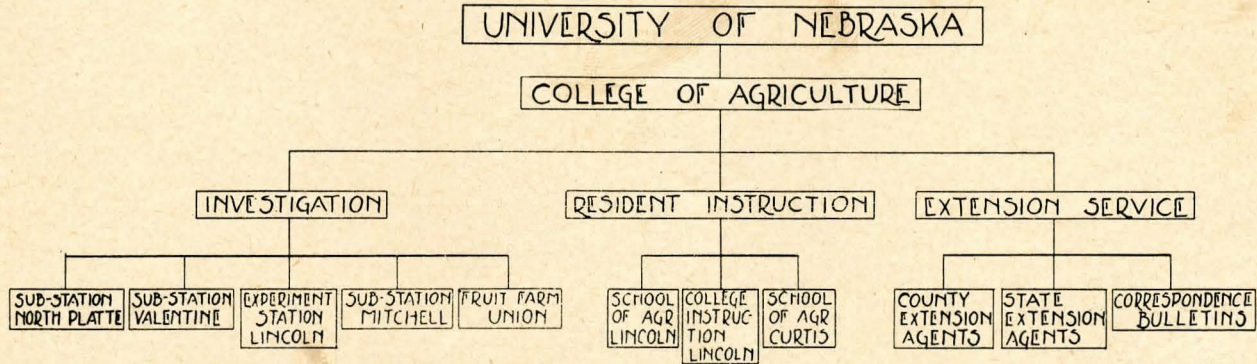 UNIVERSITY OF NEBRASKA
COLLEGE OF AGRICULTURE
INVESTIGATION
RESIDENT INSTRUCTION
EXTENSION SERVICE
SUB-STATION
NORTH PLATTE
SUB-STATION
VALENTINE
EXPERIMENT
STATION
LINCOLN
SUB-STATION
MITCHELL
FRUIT FARM
UNION
SCHOOL
OF AGR
LINCOLN
COLLEGE
INSTRUC-
TION
LINCOLN
SCHOOL
OF AGR
CURTIS
COUNTY
EXTENSION
AGENTS
STATE
EXTENSION
AGENTS
CORRESPONDENCE
BULLETINS